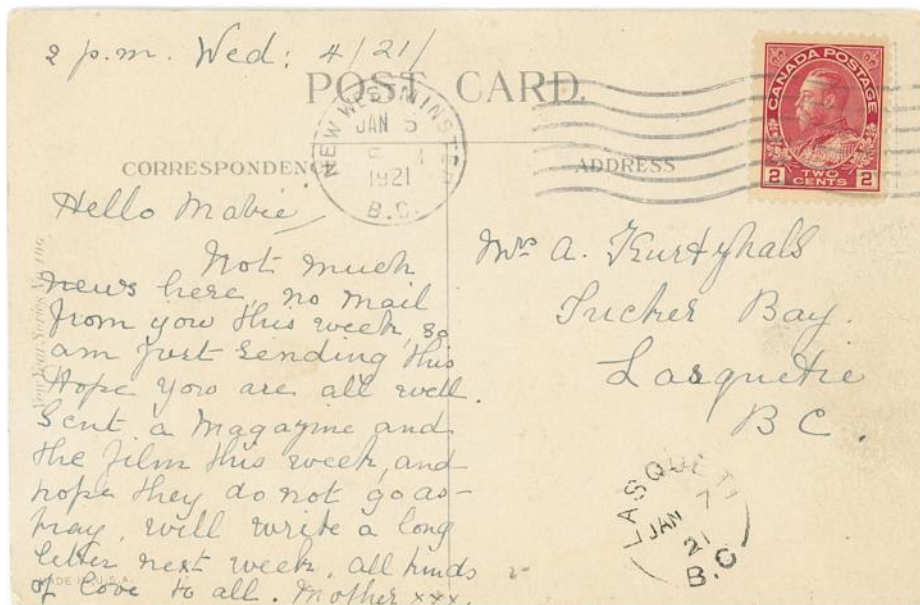 2 p.m. Wed: 4/21/
POST CARD.
CANADA POSTAGE
2 TWO CENTS 2
NEW WESTMINSTER
JAN 5
1921
B.C.
CORRESPONDENCE
ADDRESS
Hello Mabie
Not much
news here, no mail
from you this week, so
am just sending this
Hope you are all well.
Sent a Magazine and
the film this week, and
hope they do not go as-
tray, will write a long
letter next week, all kinds
of love to all. Mother xxx.
Mrs A.
Tucker Bay.
Lasquetie
BC.
LASQUETI
7
JAN
21
B.C
New Year Series No.
MADE IN U.S.A.